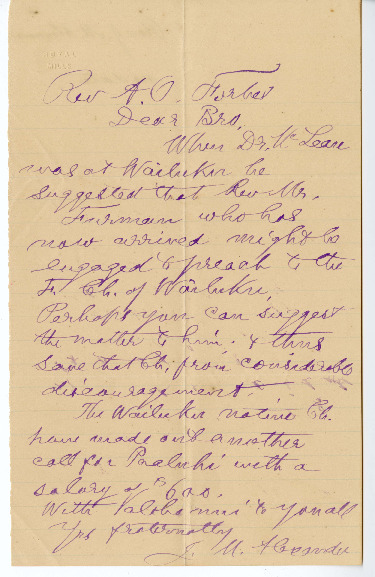 Rev A. O. Forbes
Dear Bro,
When Dr. McLean
was at Wailuku he
suggested that Rev Mr.
Furman who has
now arrived might be
engaged to preach to the
Fr. Ch. of Wailuku,
Perhaps you can suggest
the matter to him, & thus
save that Ch. from considerable
discouragement.
The Wailuku native Ch.
have made out another
call for Paaluhi with a
salary of $600.
With aloha nui to you all
Yrs fraternally
J. M. Alexander